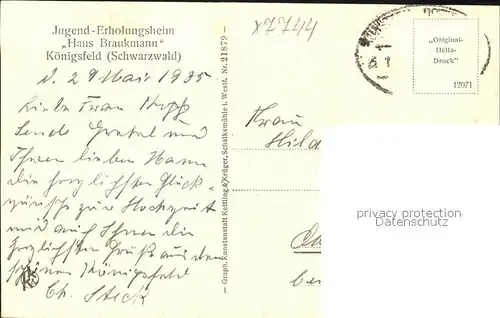 Jugend-Erholungsheim
„Haus Braukmann"
Königsfeld (Schwarzwald)
d. 29 Mai 1935
Liebe Frau
Sende Gretel und
Ihrem lieben Mann
die herzlichsten Glück-
wünsche zur Hochzeit
und auch Ihnen die
herzlichsten Grüße aus dem
schönen Königsfeld
Ch. Steck
— Graph. Kunstanstalt Kettling & Krüger, Schalksmühle i. Westf. Nr. 21879 —
x7744
„Original-
Hella-
Druck"
12071
Frau
Hild
property protection
Datenschutz
bei